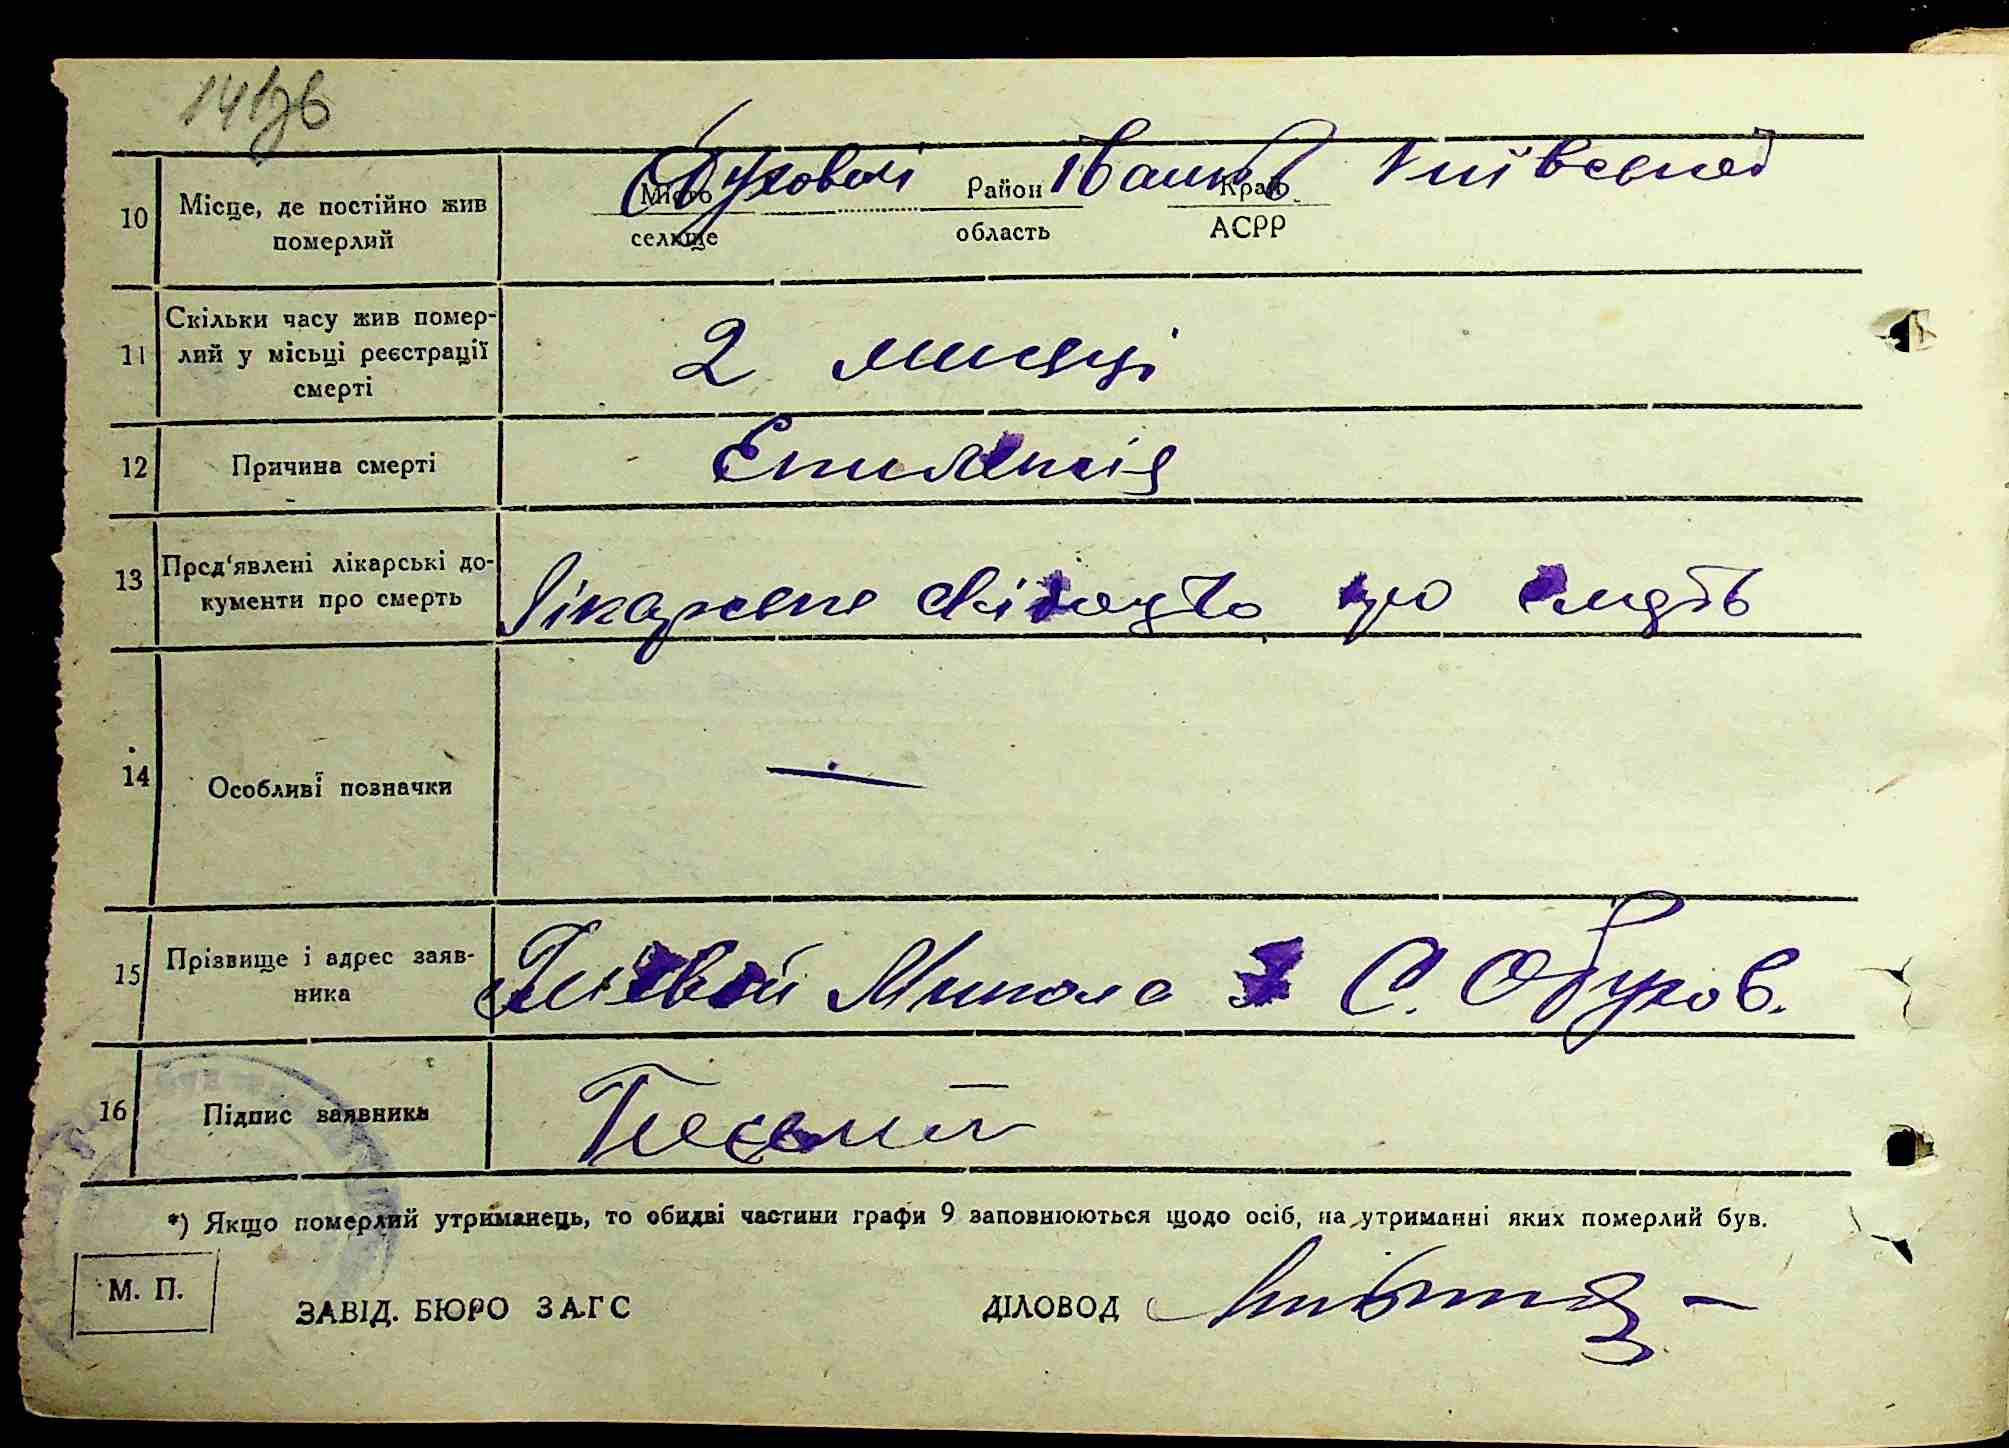 141зв
10 Місце, де постійно жив померлий
Місто селище Обуховичі Район область Іванків Край АСРР Київської
11 Скільки часу жив помер-
лий у місьці реєстрації
смерті
2 місяці
12 Причина смерті
Епилепсія
13 Пред'явлені лікарські до-
кументи про смерть
Лікарське свідоцтво про смерть
14 Особливі позначки
—
15 Прізвище і адрес заяв-
ника
Микола С. Обухов.
16 Підпис заявника
*) Якщо померлий утриманець, то обидві частини графи 9 заповнюються щодо осіб, на утриманні яких померлий був.
М. П.
ЗАВІД. БЮРО ЗАГС ДІЛОВОД